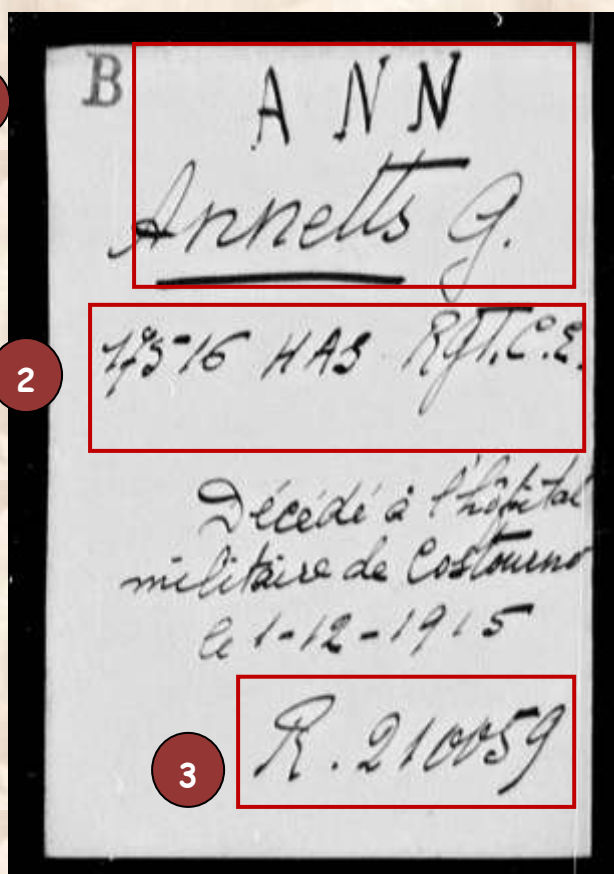 B
ANN
Annetts G.
17516 HAS Rgt. C.E.
2
Décédé à l'hôpital
militaire de Costourno
le 1-12-1915
R. 210059
3